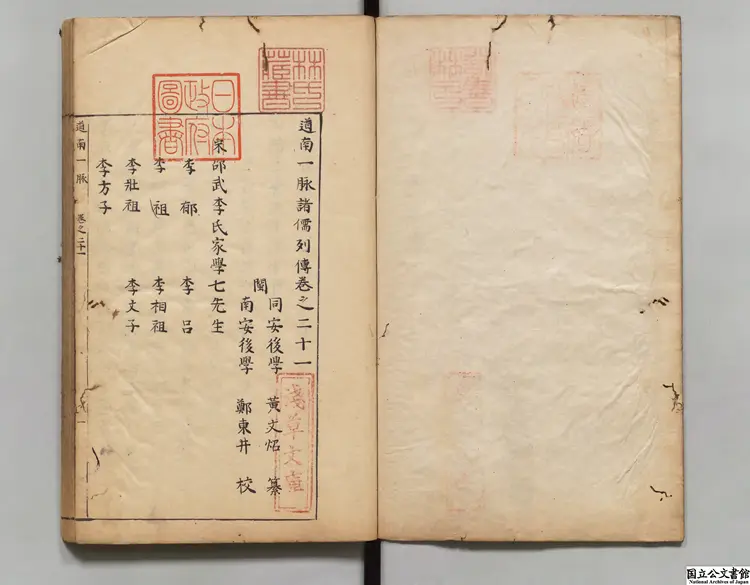 道南一脈諸儒列傳卷之二十一
閩
同安後學 黃文炤 纂
南安後學 鄭東井 校
宋邵武李氏家學七先生
李郁 李呂
李祖 李相祖
李壯祖 李文子
李方子
道南一脈 卷之二十一
林氏藏書
日本政府圖書
淺草文庫
国立公文書館
National Archives of Japan